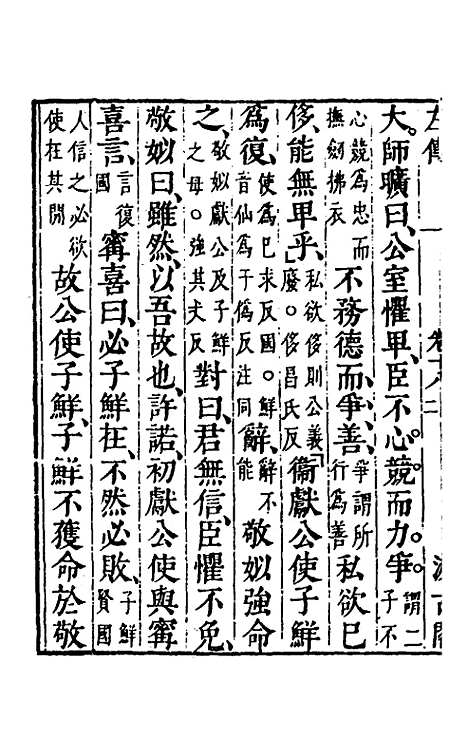 大。師曠曰、公室懼卑、臣不心競而力爭。謂二子不
心競為忠而撫劒拂衣不務德而爭善、爭謂所行為善私欲已
侈、能無卑乎、私欲侈則公義廢。侈昌氏反衞獻公使子鮮
為復、使為已求反國。鮮音仙為于偽反注同辭、辭不能敬姒強命
之、敬姒獻公及子鮮之母。強其丈反對曰、君無信、臣懼不免、
敬姒曰、雖然、以吾故也、許諾、初獻公使與甯
喜言、言復國甯喜曰、必子鮮在、不然必敗、子鮮賢國
人信之必欲使在其間故公使子鮮、子鮮不獲命於敬